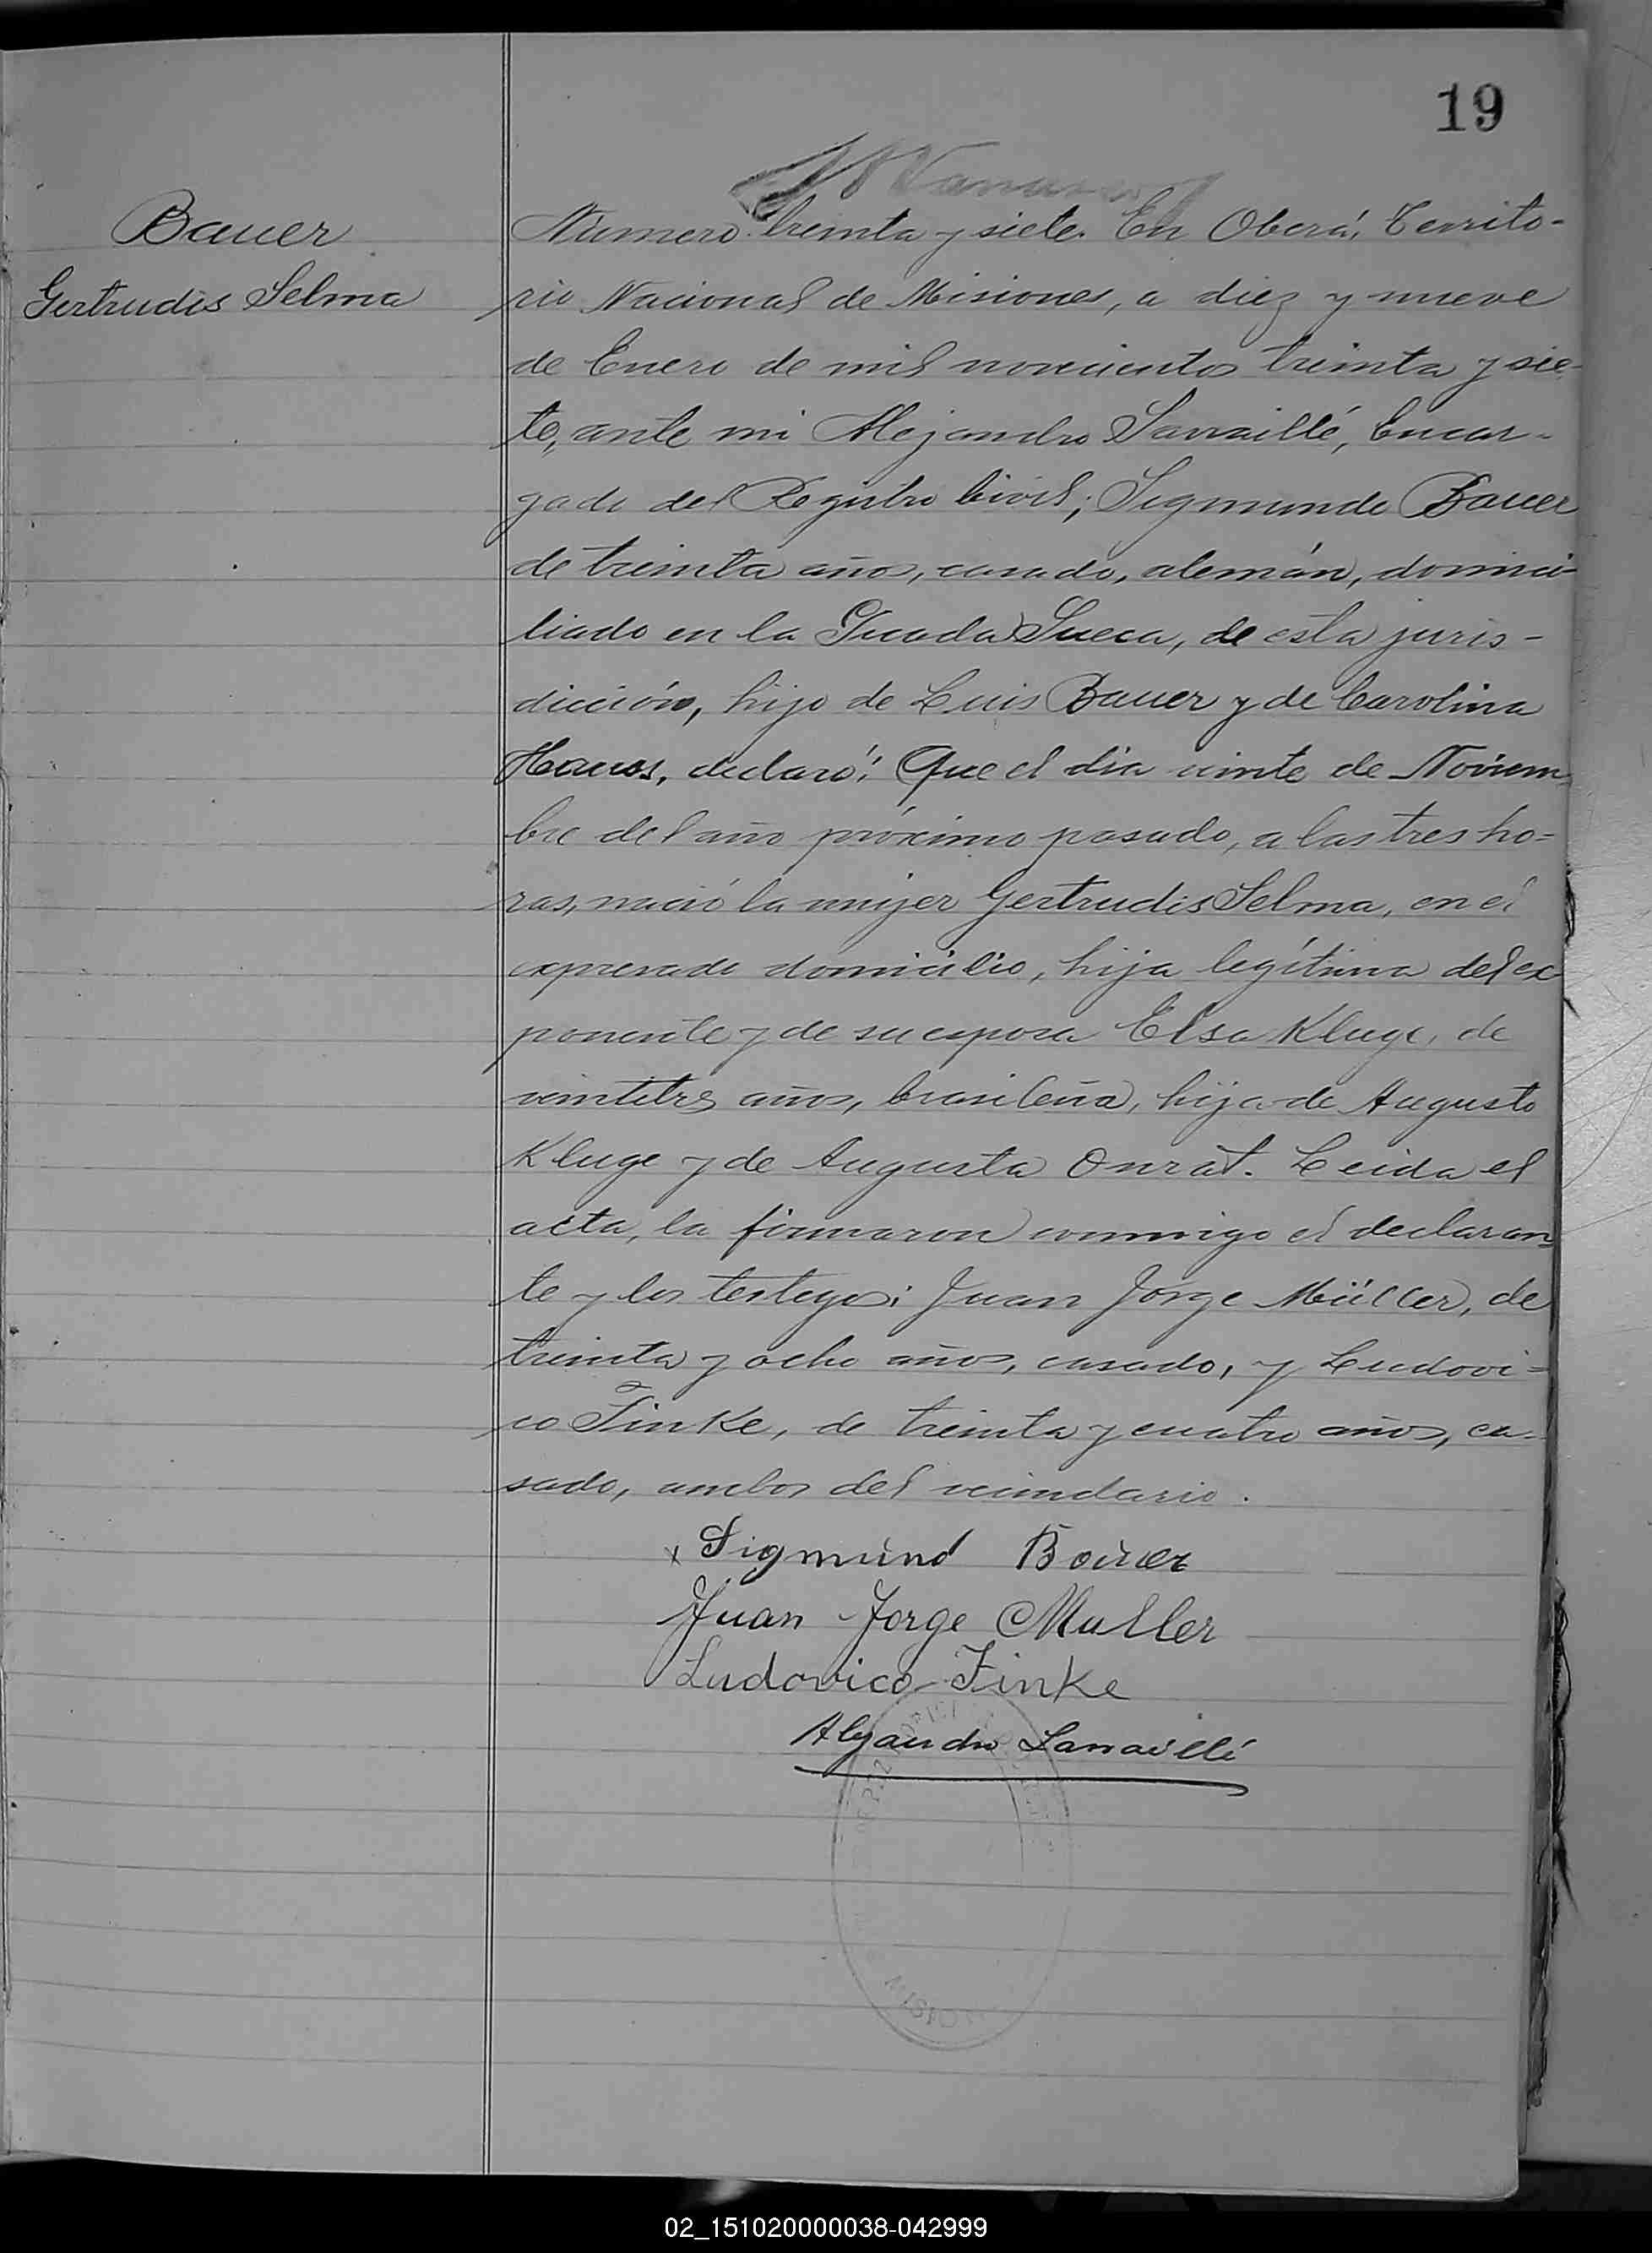 19
Bauer
Gertrudis Selma
Número treinta y siete. En Oberá, Territo-
rio Nacional de Misiones, a diez y nueve
de Enero de mil novecientos treinta y sie-
te, ante mi Alejandro Sarraillé, Encar-
gado del Registro Civil; Sigmundo Bauer
de treinta años, casado, alemán, domici-
liado en la Picada Sueca, de esta juris-
dicción, hijo de Luis Bauer y de Carolina
declaró: Que el día veinte de Noviem
bre del año próximo pasado, a las tres ho=
ras, nació la mujer Gertrudis Selma, en el
expresado domicilio, hija legítima del ex-
ponente y de su esposa Elsa Kluge, de
veintitres años, brasileña, hija de Augusto
Kluge y de Augusta Onrat. Leida el
acta, la firmaron conmigo el declaran=
te y los testigos: Juan Jorge Müller, de
treinta y ocho años, casado, y Ludovi=
co Finke, de treinta y cuatro años, ca=
sado, ambos del vecindario.
x Sigmund Bauer
Juan Jorge Muller
Ludovico Finke
Alejandro Sarraillé
02_151020000038-042999